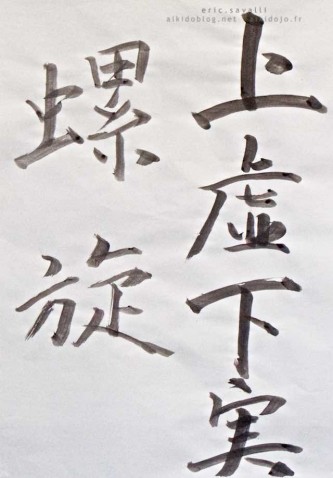 eric.savalli
aikidoblog.net - aikidojo.fr
上虚下実
螺旋